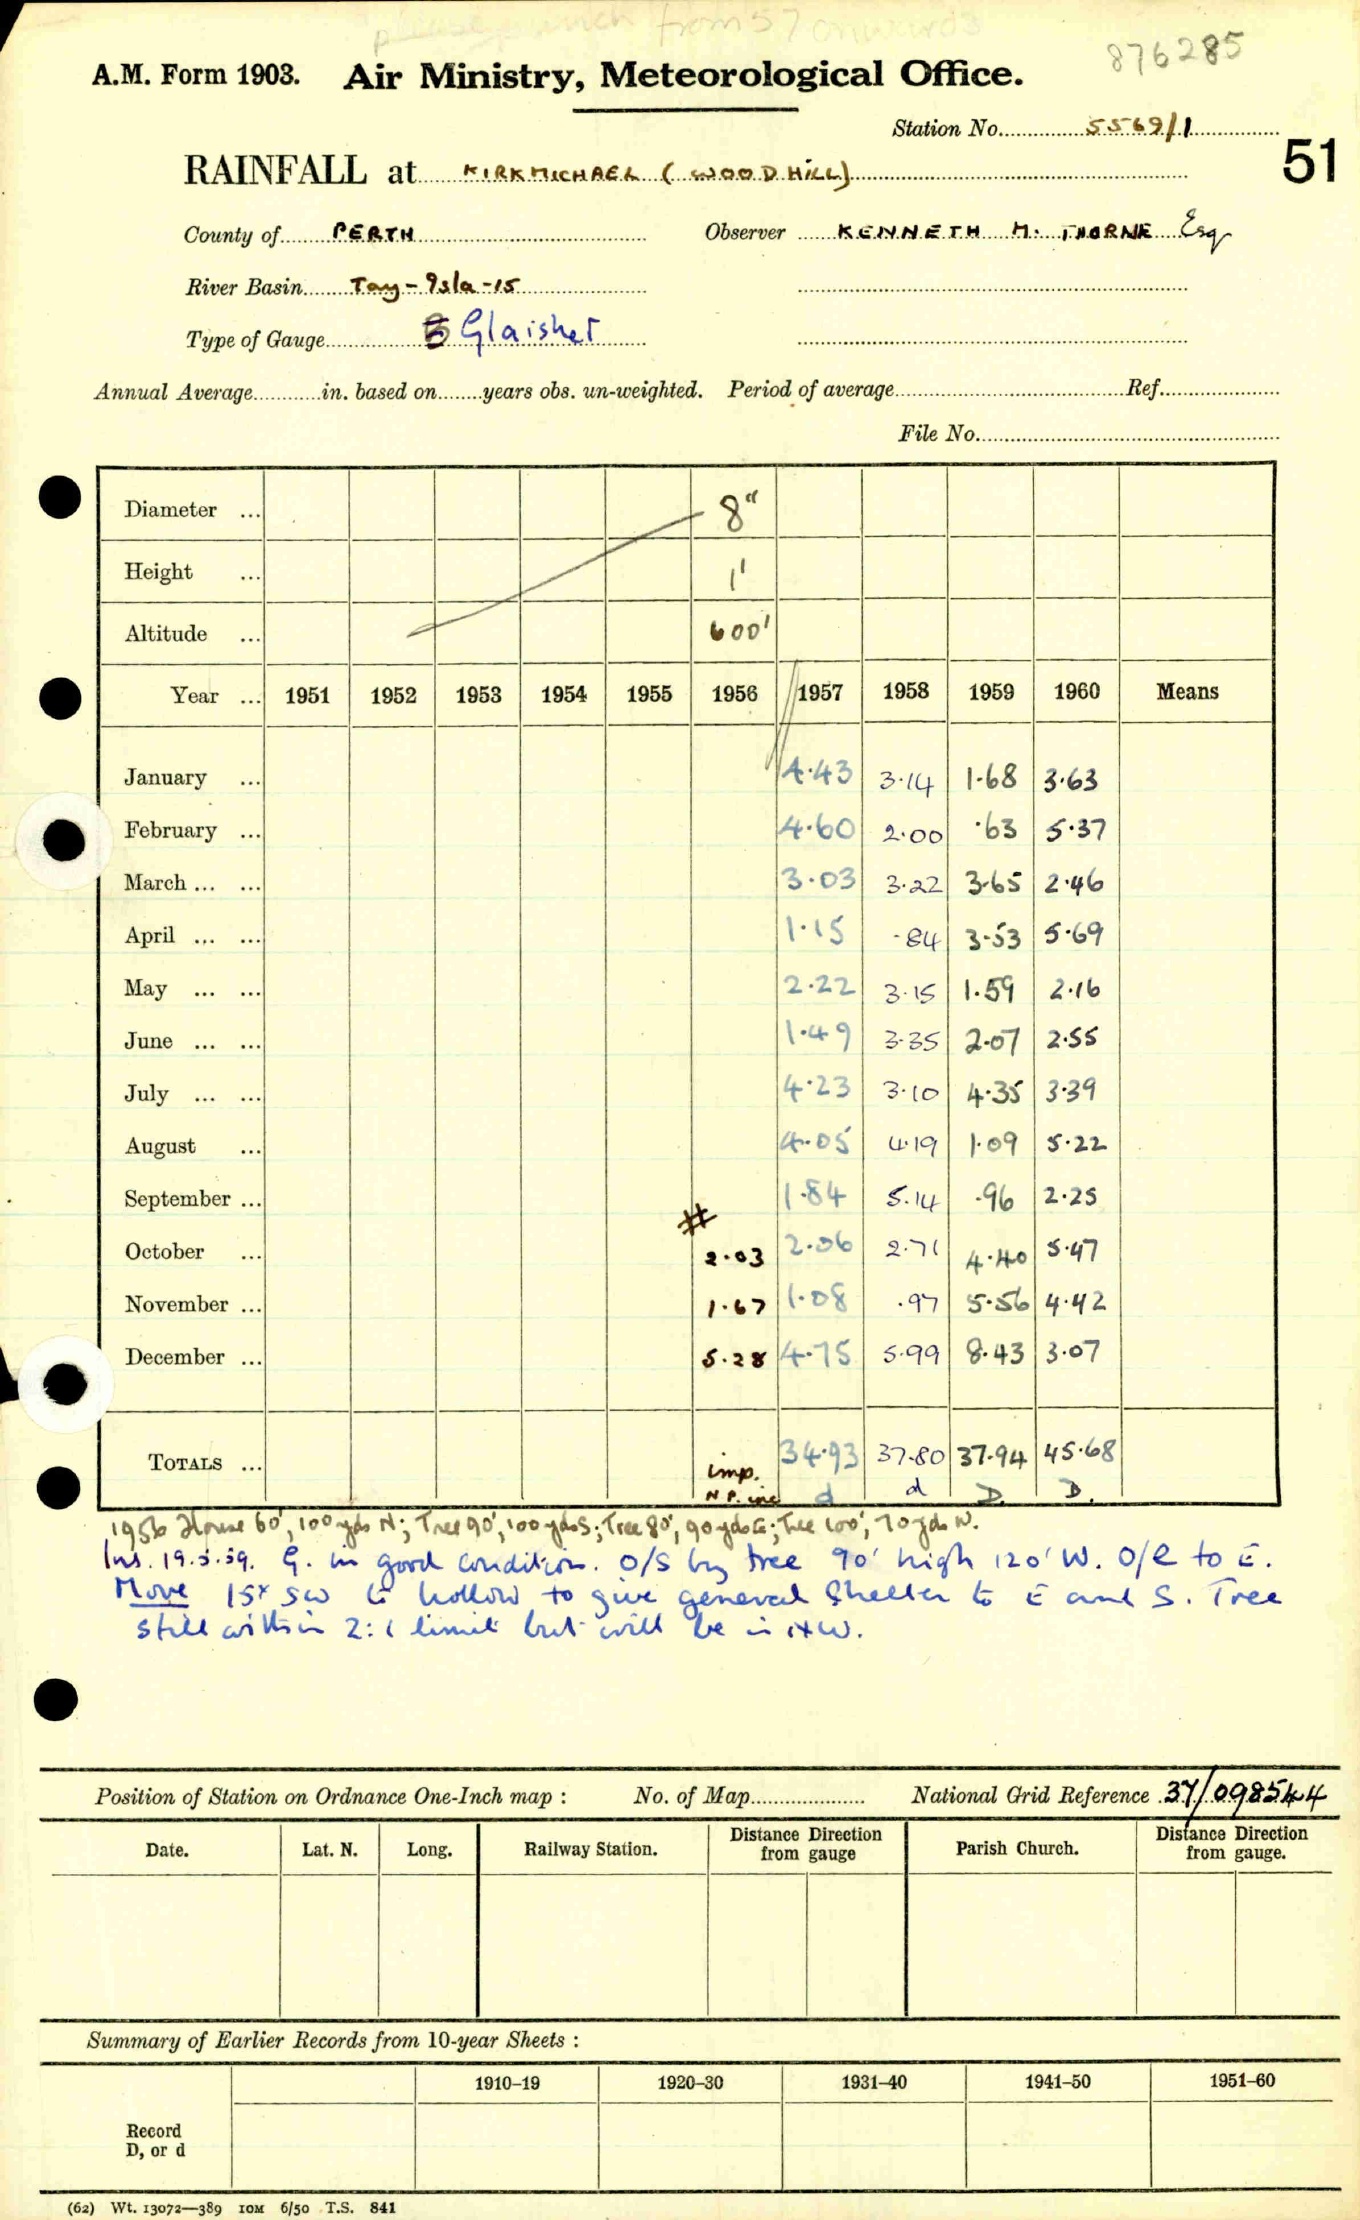 please punch from 57 onwards
876285
A.M. Form 1903. Air Ministry, Meteorological Office.
Station No. 5569/1
51
RAINFALL at KIRKMICHAEL (WOODHILL)
County of PERTH Observer KENNETH M. THORNE Esq
River Basin Tay - Isla - 15
Type of Gauge Glaisher
Annual Average in. based on years obs. un-weighted. Period of average Ref.
File No.
Diameter ... 8"
Height ... 1'
Altitude ... 600'
Year ... 1951 1952 1953 1954 1955 1956 1957 1958 1959 1960 Means
January ... 4.43 3.14 1.68 3.63
February ... 4.60 2.00 .63 5.37
March ... ... 3.03 3.22 3.65 2.46
April ... ... 1.15 .84 3.53 5.69
May ... ... 2.22 3.15 1.59 2.16
June ... ... 1.49 3.35 2.07 2.55
July ... ... 4.23 3.10 4.35 3.39
August ... 4.05 4.19 1.09 5.22
September ... 1.84 5.14 .96 2.25
#
October ... 2.03 2.06 2.71 4.40 5.47
November ... 1.67 1.08 .97 5.56 4.42
December ... 5.28 4.75 5.99 8.43 3.07
TOTALS ... imp. 34.93 37.80 37.94 45.68
N.P. inc d d D D.
1956 House 60', 100yds N; Tree 90', 100yds S; Tree 80', 90yds E; Tree 100', 70yds W.
Ins. 19.5.59. G. in good condition. O/S by tree 90' high 120' W. O/E to E.
Move 15x SW to hollow to give general shelter to E and S. Tree
still within 2:1 limit but will be in NW.
Position of Station on Ordnance One-Inch map : No. of Map National Grid Reference 37/098544
Date. Lat. N. Long. Railway Station. Distance Direction from gauge Parish Church. Distance Direction from gauge.
Summary of Earlier Records from 10-year Sheets :
1910–19 1920–30 1931–40 1941–50 1951–60
Record
D, or d
(62) Wt. 13072—389 10M 6/50 T.S. 841